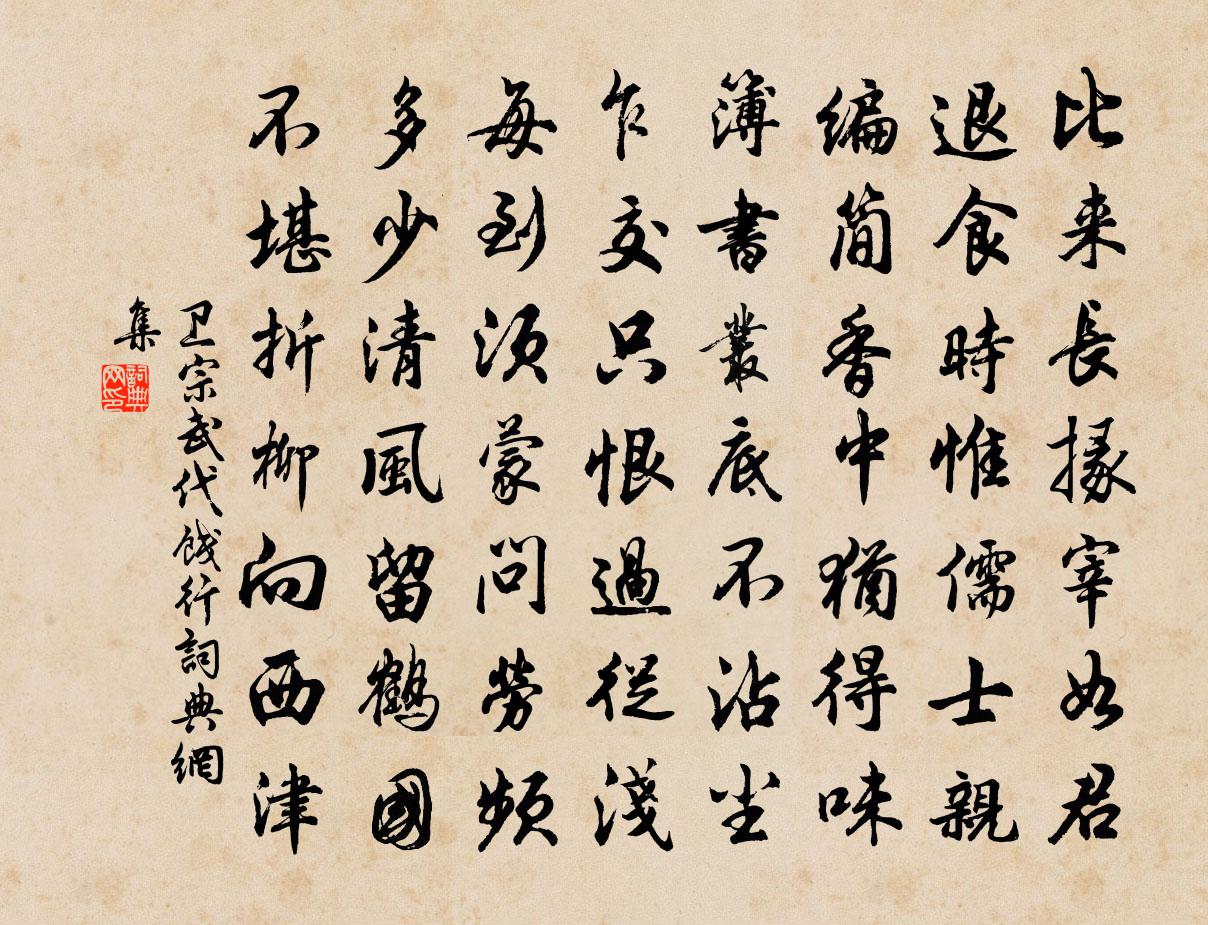 比来長掾宰如君
退食時惟儒士親
编简香中猶得味
薄書叢底不沾尘
乍交只恨過従淺
每到须蒙問勞频
多少清風留鶴國
不堪折柳向西津
卫宗武代餞行詞典網
集
詞典
网印